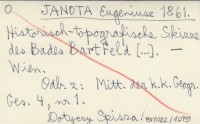 O JANOTA Eugeniusz 1861.
Historisch-topografische Skizze
des Bades Bartfeld [...]. —
Wien.
Odb. z: Mitt. der k.k. Geogr.
Ges. 4, nr 1.
Dotyczy Spisza.